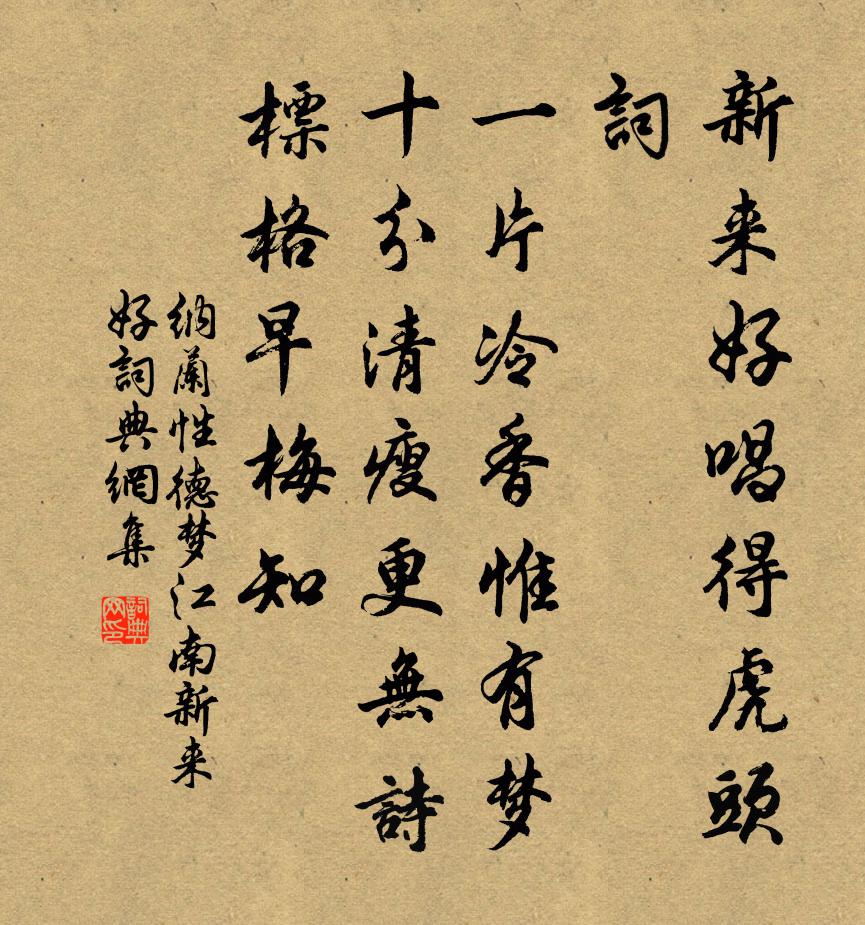 新来好唱得虎頭
詞
一片冷香惟有梦
十分清瘦更無詩
標格早梅知
纳蘭性德梦江南新来
好詞典網集
詞典网印